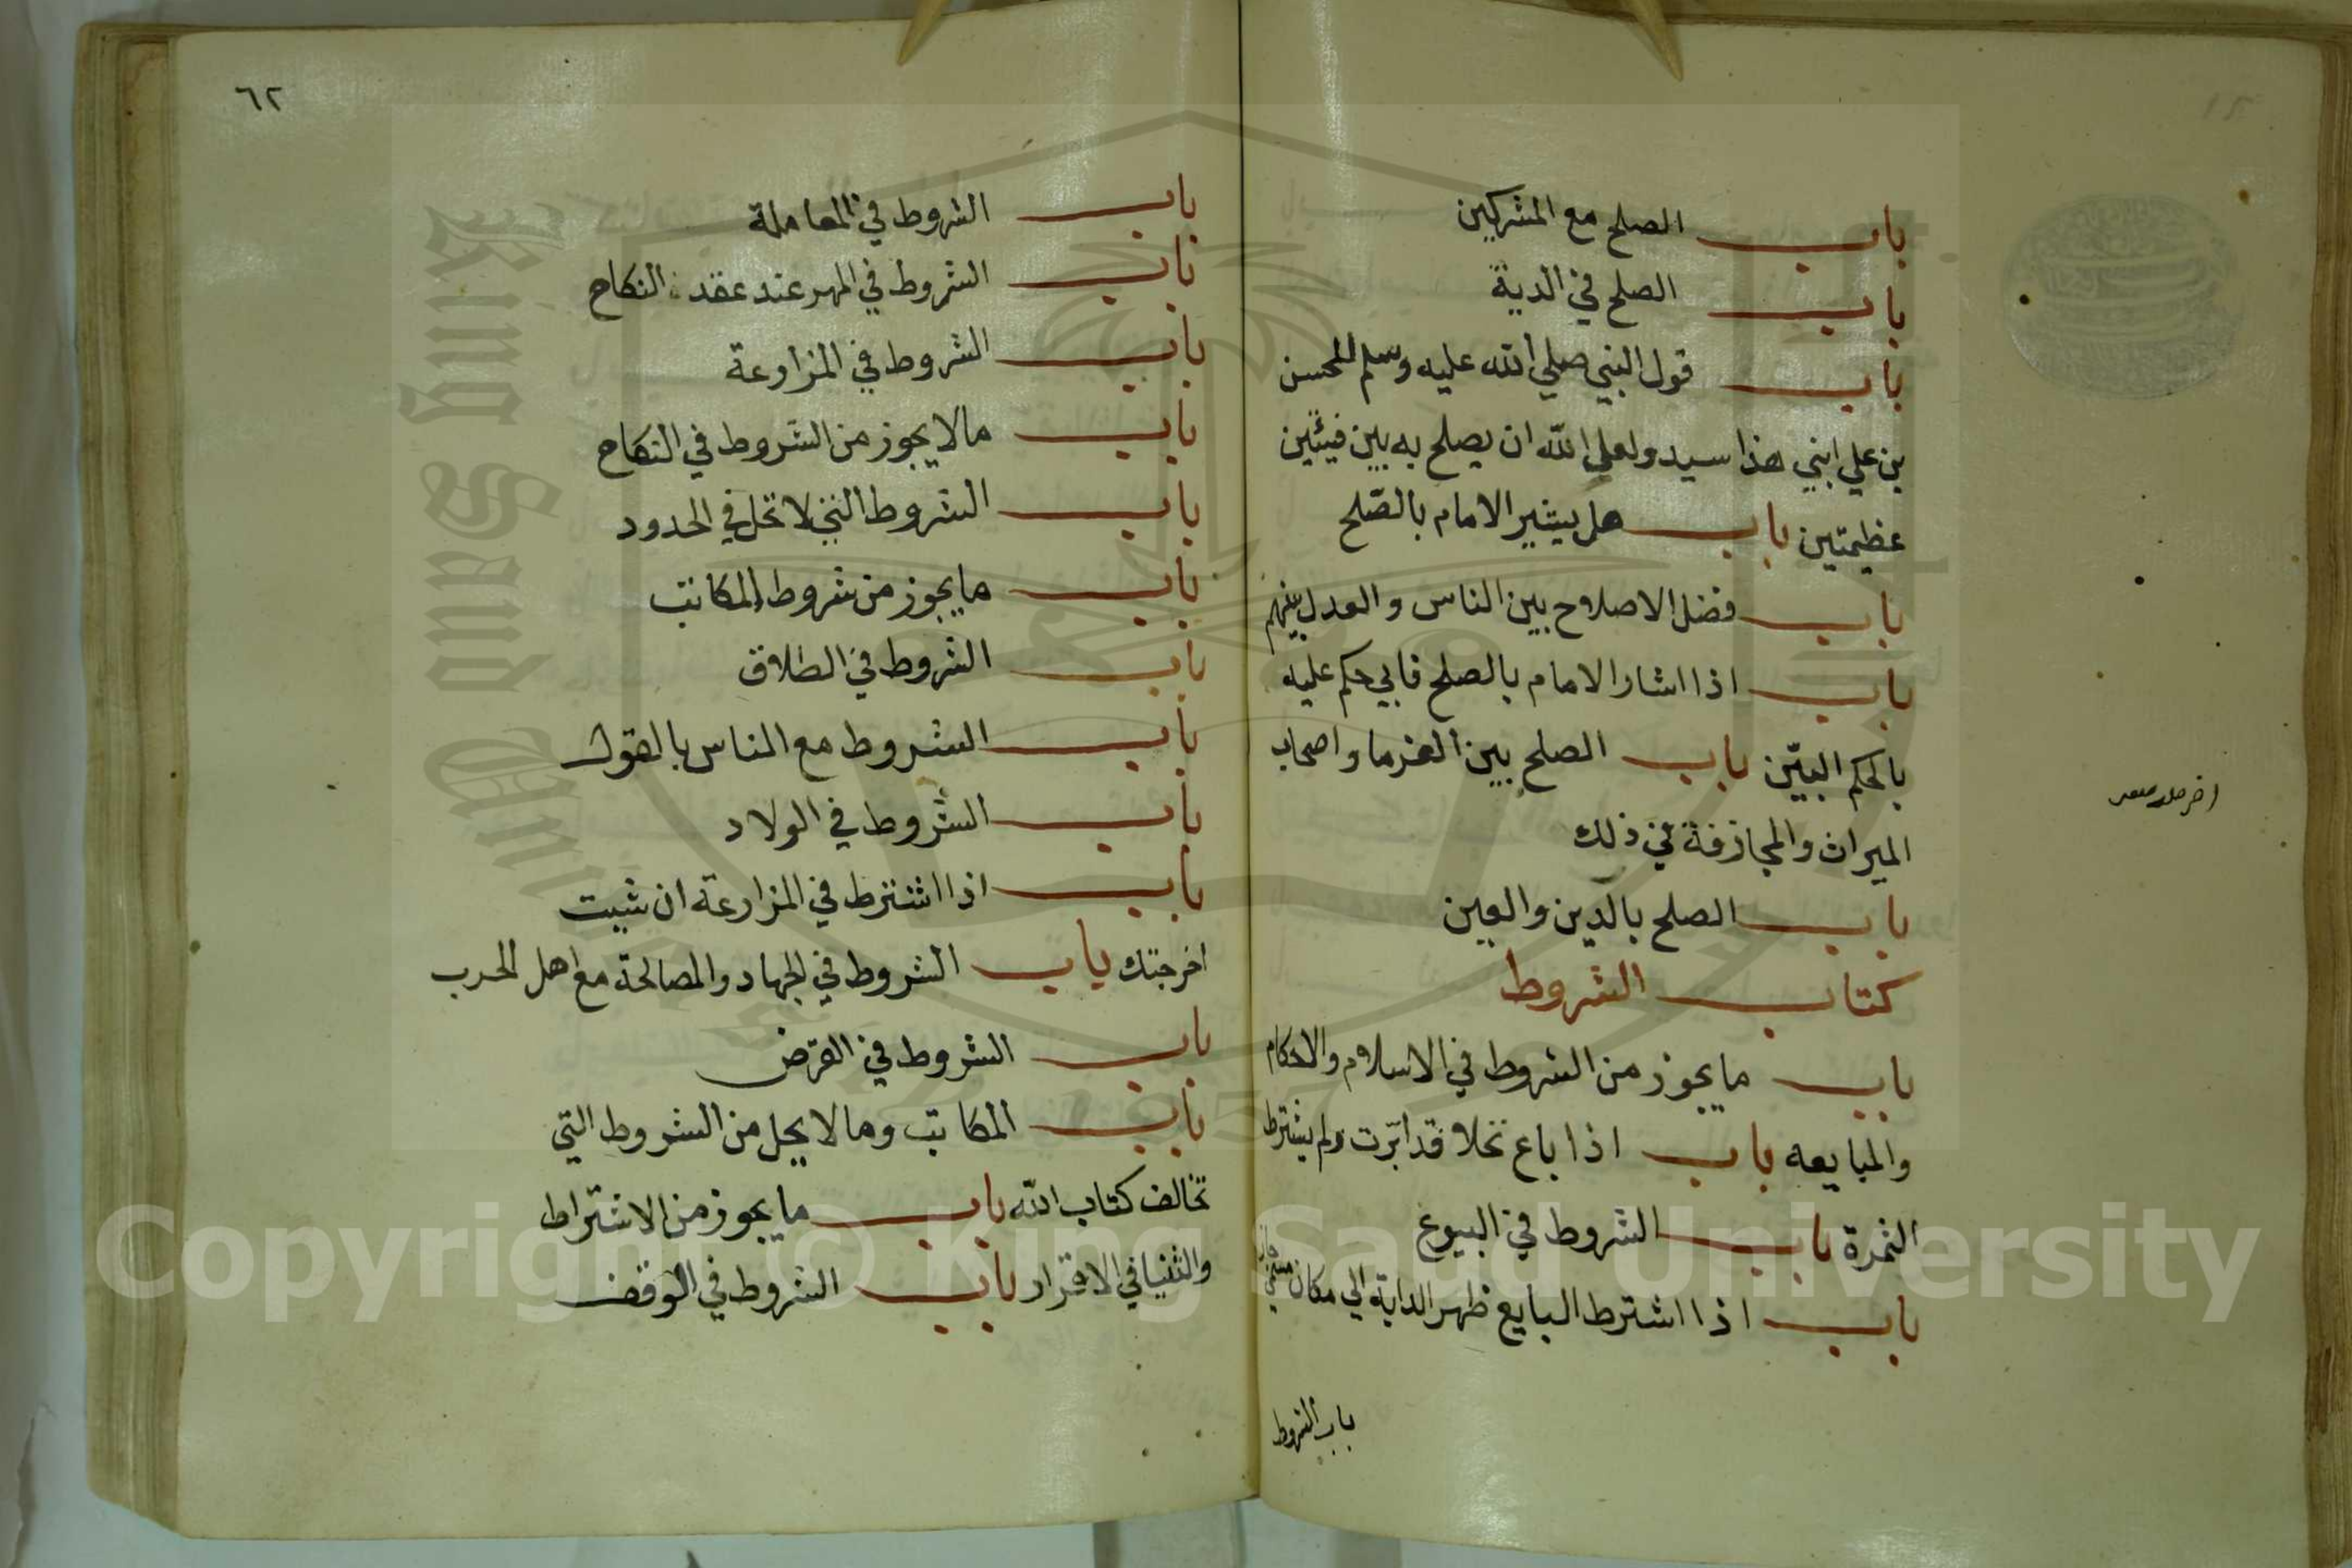 باب الصلح مع المشركين
باب الصلح في الدية
باب قول النبي صلي الله عليه وسلم للحسن
بن علي ابني هذا سيد ولعل الله ان يصلح به بين فيئتين
عظيمتين باب هل يشير الامام بالصّلح
باب فضل الاصلاح بين الناس والعدل بينهم
باب اذا اشار الامام بالصلح فابي حكم عليه
بالحكم البيّن باب الصلح بين الغرما واصحاب
الميراث والمجازفة في ذلك
باب الصلح بالدين والعين
كتاب الشروط
باب ما يجوز من الشروط في الاسلام والاحكام
والمبايعه باب اذا باع نخلا قد ابّرت ولم يشترط
الثمرة باب الشروط في البيوع
باب اذا اشترط البايع ظهر الدابة الي مكان مسمي جاز
باب الشروط
٦٢
باب الشروط في المعاملة
باب الشروط في المهر عند عقد النكاح
باب الشروط في المزارعة
باب مالا يجوز من الشروط في النكاح
باب الشروط التي لا تحل في الحدود
باب ما يجوز من شروط المكاتب
باب الشروط في الطلاق
باب الشروط مع الناس بالقول
باب الشروط في الولاد
باب اذا اشترط في المزارعة ان شيت
اخرجتك باب الشروط في الجهاد والمصالحة مع اهل الحرب
باب الشروط في القرض
باب المكاتب وما لا يحل من الشروط التي
تخالف كتاب الله باب ما يجوز من الاشتراط
والثنيا في الاقرار باب الشروط في الوقف
King Saud University
1957
Copyright © King Saud University